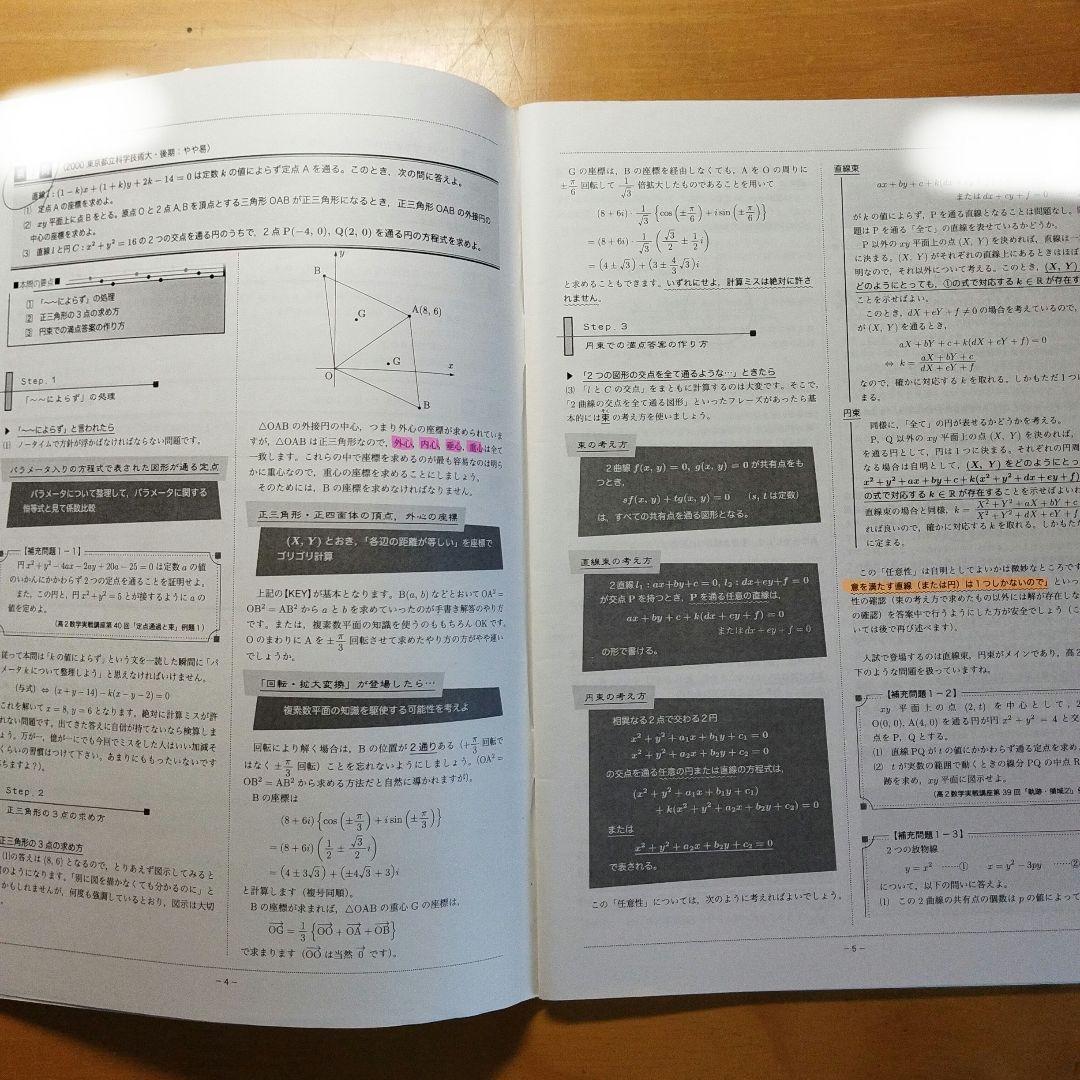 (2000 東京都立科学技術大・後期：やや易)
直線 l : (1−k)x + (1+k)y + 2k − 14 = 0 は定数 k の値によらず定点 A を通る。このとき、次の問に答えよ。
(1) 定点 A の座標を求めよ。
(2) xy 平面上に点 B をとる。原点 O と 2 点 A, B を頂点とする三角形 OAB が正三角形になるとき、正三角形 OAB の外接円の
中心の座標を求めよ。
(3) 直線 l と円 C : x² + y² = 16 の 2 つの交点を通る円のうちで、2 点 P(−4, 0), Q(2, 0) を通る円の方程式を求めよ。
■本問の要点■
1 「～～によらず」の処理
2 正三角形の3点の求め方
3 円束での満点答案の作り方
Step. 1
「～～によらず」の処理
▶ 「～～によらず」と言われたら
(1) ノータイムで方針が浮かばなければならない問題です。
パラメータ入りの方程式で表された図形が通る定点
パラメータについて整理して，パラメータに関する
恒等式と見て係数比較
【補充問題1−1】
円 x²+y²−4ax−2ay+20a−25=0 は定数 a の値
のいかんにかかわらず2つの定点を通ることを証明せよ。
また，この円と，円 x²+y²=5 とが接するように a の
値を定めよ。
(高2数学実戦講座第40回「定点通過と束」例題1)
従って本問は「k の値によらず」という文を一読した瞬間に「パ
メータ k について整理しよう」と思えなければいけません。
(与式) ⇔ (x+y−14)−k(x−y−2)=0
これを解いて x=8, y=6 となります。絶対に計算ミスが許
れない問題です。出てきた答えに自信が持てないなら検算しま
ょう。万が一，億が一にでも今回でミスをした人はいい加減そ
くらいの習慣はつけて下さい。あまりにももったいないです
ちますよ?）。
Step. 2
正三角形の3点の求め方
正三角形の3点の求め方
(1)の答えは (8, 6) となるので，とりあえず図示してみると
のようになります。「別に図を描かなくても分かるのに」と
かもしれませんが，何度も強調しているとおり，図示は大切
y
B
G
A(8, 6)
G
x
O
B
△OAB の外接円の中心，つまり外心の座標が求められていま
すが，△OAB は正三角形なので，外心，内心，垂心，重心は全て
一致します。これらの中で座標を求めるのが最も容易なのは明ら
かに重心なので，重心の座標を求めることにしましょう。
そのためには，B の座標を求めなければなりません。
正三角形・正四面体の頂点，外心の座標
(X, Y) とおき，「各辺の距離が等しい」を座標で
ゴリゴリ計算
上記の【KEY】が基本となります。B(a, b) などとおいて OA²=
OB²=AB² から a と b を求めていったのが手書き解答のやり方
です。または，複素数平面の知識を使うのももちろん OK です。
O のまわりに A を ±π/3 回転させて求めたやり方の方がやや速い
でしょうか。
「回転・拡大変換」が登場したら…
複素数平面の知識を駆使する可能性を考えよ
回転により解く場合は，B の位置が2通りある (+π/3 回転で
はなく ±π/3 回転) ことを忘れないようにしましょう。(OA²=
OB²=AB² から求める方法だと自然に導かれますが)。
B の座標は
(8+6i){cos(±π/3)+i sin(±π/3)}
=(8+6i)(1/2 ± √3/2 i)
=(4±3√3)+(±4√3+3)i
と計算します (複号同順)。
B の座標が求まれば，△OAB の重心 G の座標は，
OG→ = 1/3 {OO→ + OA→ + OB→}
で求まります (OO→ は当然 0→ です)。
−4−
G の座標は，B の座標を経由しなくても，A を O の周りに
±π/6 回転して 1/√3 倍拡大したものであることを用いて
(8+6i)・1/√3 {cos(±π/6)+i sin(±π/6)}
=(8+6i)・1/√3 (√3/2 ± 1/2 i)
=(4±√3)+(3±4/3 √3)i
と求めることもできます。いずれにせよ，計算ミスは絶対に許さ
れません。
Step. 3
円束での満点答案の作り方
▶ 「2つの図形の交点を全て通るような…」ときたら
(3) 「l と C の交点」をまともに計算するのは大変です。そこで，
「2曲線の交点を全て通る図形」といったフレーズがあったら基
本的には束の考え方を使いましょう。
束の考え方
2曲線 f(x, y)=0, g(x, y)=0 が共有点をも
つとき，
sf(x, y)+tg(x, y)=0 (s, t は定数)
は，すべての共有点を通る図形となる。
直線束の考え方
2直線 l₁ : ax+by+c=0, l₂ : dx+ey+f=0
が交点 P を持つとき，P を通る任意の直線は，
ax+by+c+k(dx+ey+f)=0
または dx+ey+f=0
の形で書ける。
円束の考え方
相異なる2点で交わる2円
x²+y²+a₁x+b₁y+c₁=0
x²+y²+a₂x+b₂y+c₂=0
の交点を通る任意の円または直線の方程式は，
(x²+y²+a₁x+b₁y+c₁)
+k(x²+y²+a₂x+b₂y+c₂)=0
または
x²+y²+a₂x+b₂y+c₂=0
で表される。
この「任意性」については，次のように考えればよいでしょう。
直線束
ax+by+c+k(d
または dx+ey+f=0
が k の値によらず，P を通る直線となることは問題なし。
題は P を通る「全て」の直線を表せているかどうか。
P 以外の xy 平面上の点 (X, Y) を決めれば，直線は一
に決まる。(X, Y) がそれぞれの直線上にあるときはほぼ
明なので，それ以外について考える。このとき，(X, Y)
どのようにとっても，①の式で対応する k∈R が存在す
ことを示せばよい。
このとき，dX+eY+f≠0 の場合を考えているので，
が (X, Y) を通るとき，
aX+bY+c+k(dX+eY+f)=0
⇔ k = aX+bY+c / dX+eY+f
なので，確かに対応する k を取れる。しかもただ1つ
まる。
円束
同様に，「全て」の円が表せるかどうかを考える。
P, Q 以外の xy 平面上の点 (X, Y) を決めれば，
を通る円として，円は1つに決まる。それぞれの円周
なる場合は自明として，(X, Y) をどのようにとっ
x²+y²+ax+by+c+k(x²+y²+dx+ey+f)
の式で対応する k∈R が存在することを示せばよいわ
直線束の場合と同様，k = X²+Y²+aX+bY+c / X²+Y²+dX+eY+f
れば良いので，確かに対応する k を取れる。しかもただ
に定まる。
この「任意性」は自明としてよいかは微妙なところです
意を満たす直線（または円）は1つしかないので」といっ
性の確認 (束の考え方で求めたもの以外には解が存在しな
の確認) を答案中で行うようにした方が安全でしょう (こ
いては後で再び述べます)。
入試で登場するのは直線束，円束がメインであり，高2
下のような問題を扱っていますね。
【補充問題1−2】
xy 平面上の点 (2, t) を中心として，2
O(0, 0), A(4, 0) を通る円が円 x²+y²=4 と交
点を P, Q とする。
(1) 直線 PQ が t の値にかかわらず通る定点を求め
(2) t が実数の範囲で動くときの線分 PQ の中点 R
跡を求め，xy 平面に図示せよ。
(高2数学実戦講座第39回「軌跡・領域②」
【補充問題1−3】
2つの放物線
y=x² ……① x=y²−3py ……②
について，以下の問いに答えよ。
(1) この2曲線の共有点の個数は p の値によって
−5−